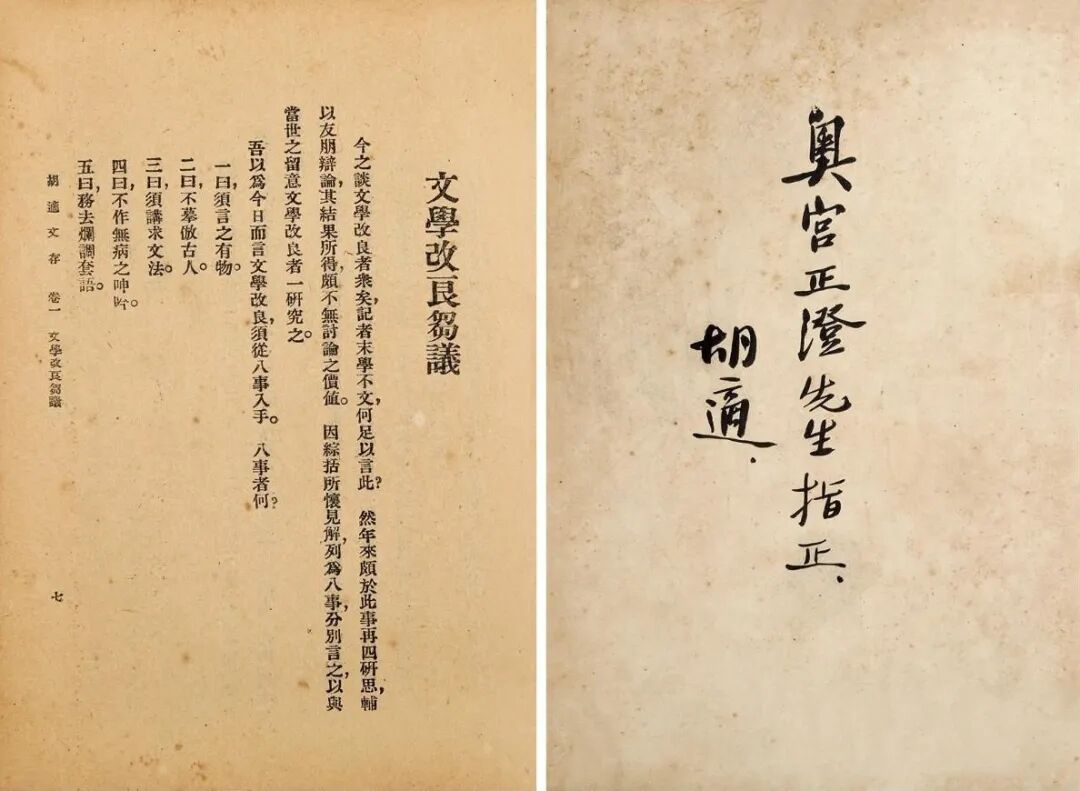 文學改良芻議
今之談文學改良者衆矣，記者末學不文，何足以言此？　然年來頗於此事再四研思，輔
以友朋辯論，其結果所得，頗不無討論之價值。　因綜括所懷見解，列爲八事，分別言之，以與
當世之留意文學改良者一研究之。
吾以爲今日而言文學改良，須從八事入手。　八事者何？
一曰，須言之有物。
二曰，不摹倣古人。
三曰，須講求文法。
四曰，不作無病之呻吟。
五曰，務去爛調套語。
胡適文存　卷一　文學改良芻議
七
奧宮正澄先生指正．
胡適．